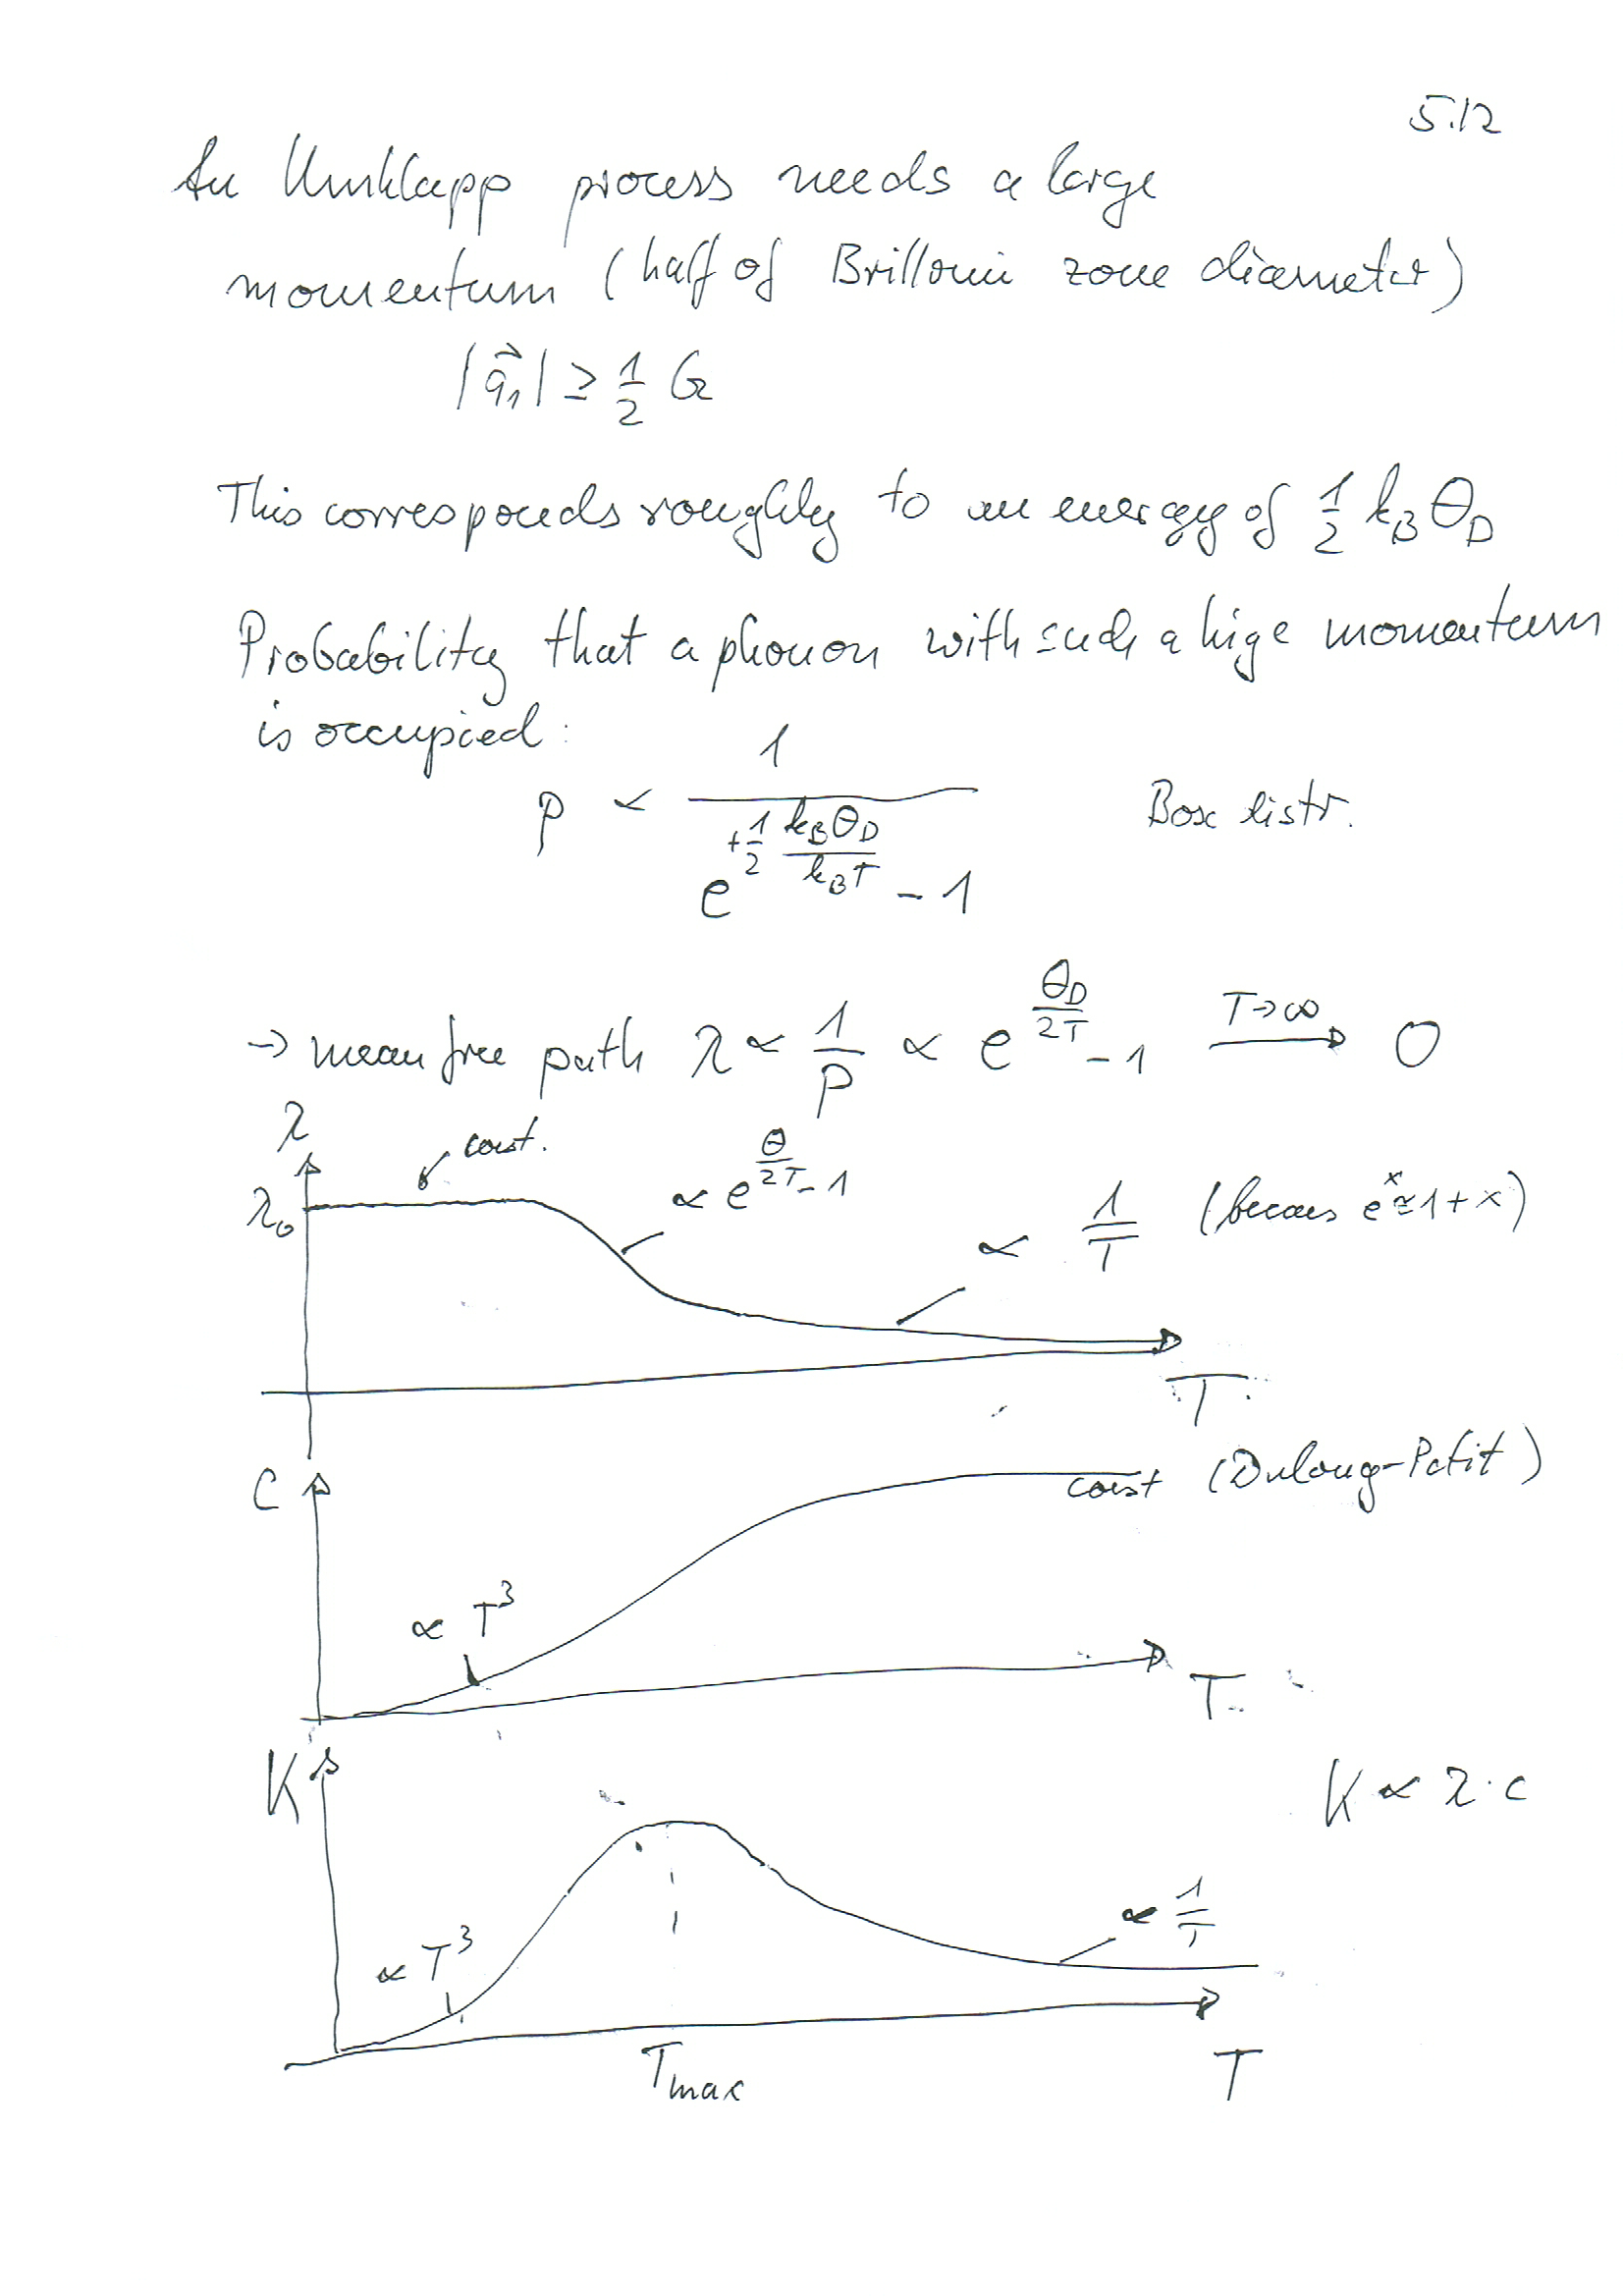 5.12
An Umklapp process needs a large
momentum (half of Brillouin zone diameter)
|q⃗₁| ≥ 1/2 G
This corresponds roughly to an energy of 1/2 k_B Θ_D
Probability that a phonon with such a hige momentum
is occupied:
p ∝ 1 / (e^(+1/2 k_BΘ_D / k_BT) - 1) Bose distr.
→ mean free path λ ∝ 1/p ∝ e^(Θ_D/2T) - 1 T→∞ → 0
λ
const.
λ₀
∝ e^(Θ/2T) - 1
∝ 1/T (becaus e^x ≈ 1 + x)
T
C
const (Dulong-Petit)
∝ T³
T
K
K ∝ λ · c
∝ T³
∝ 1/T
T_max
T